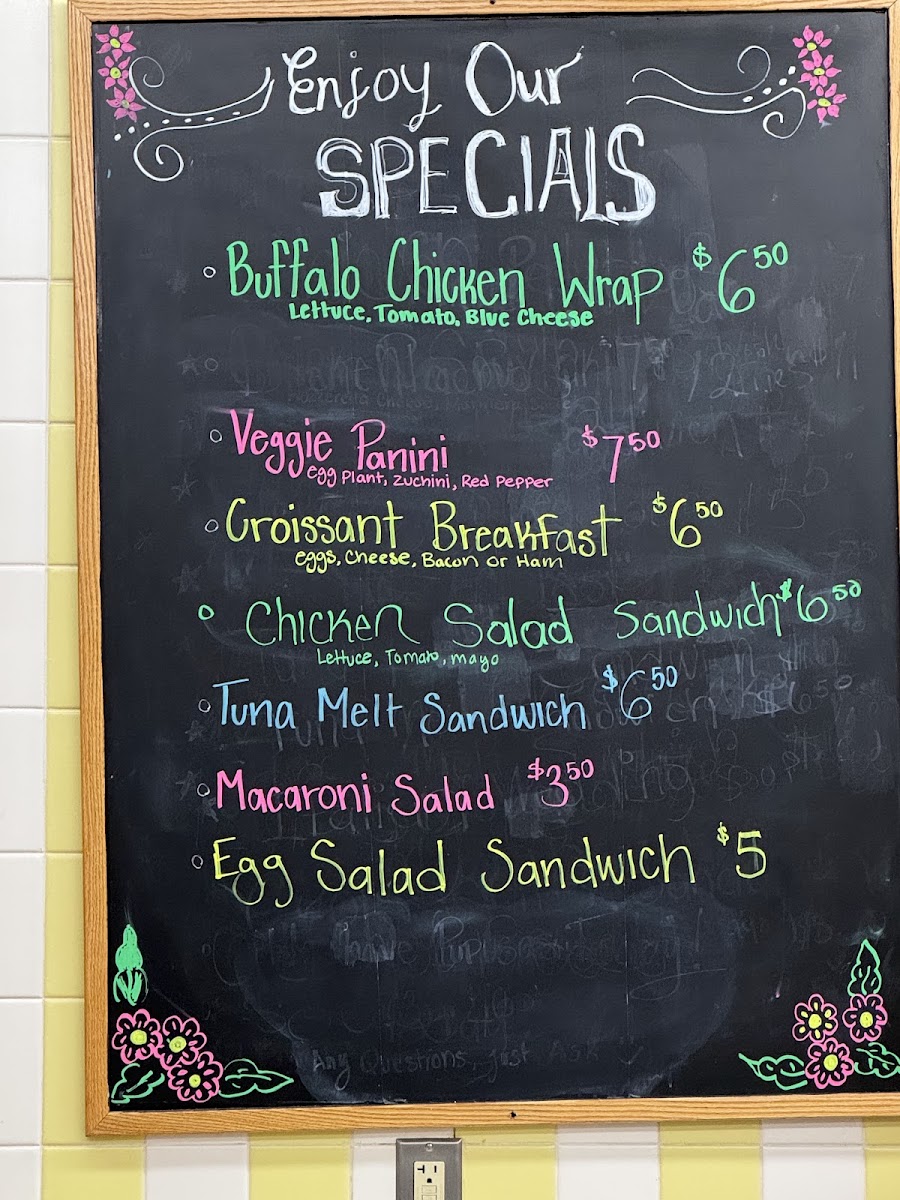 Enjoy Our
SPECIALS
Buffalo Chicken Wrap $6.50
Lettuce, Tomato, Blue Cheese
Veggie Panini $7.50
egg plant, zuchini, Red Pepper
Croissant Breakfast $6.50
eggs, Cheese, Bacon or Ham
Chicken Salad Sandwich $6.50
Lettuce, Tomato, mayo
Tuna Melt Sandwich $6.50
Macaroni Salad $3.50
Egg Salad Sandwich $5
Any Questions, Just